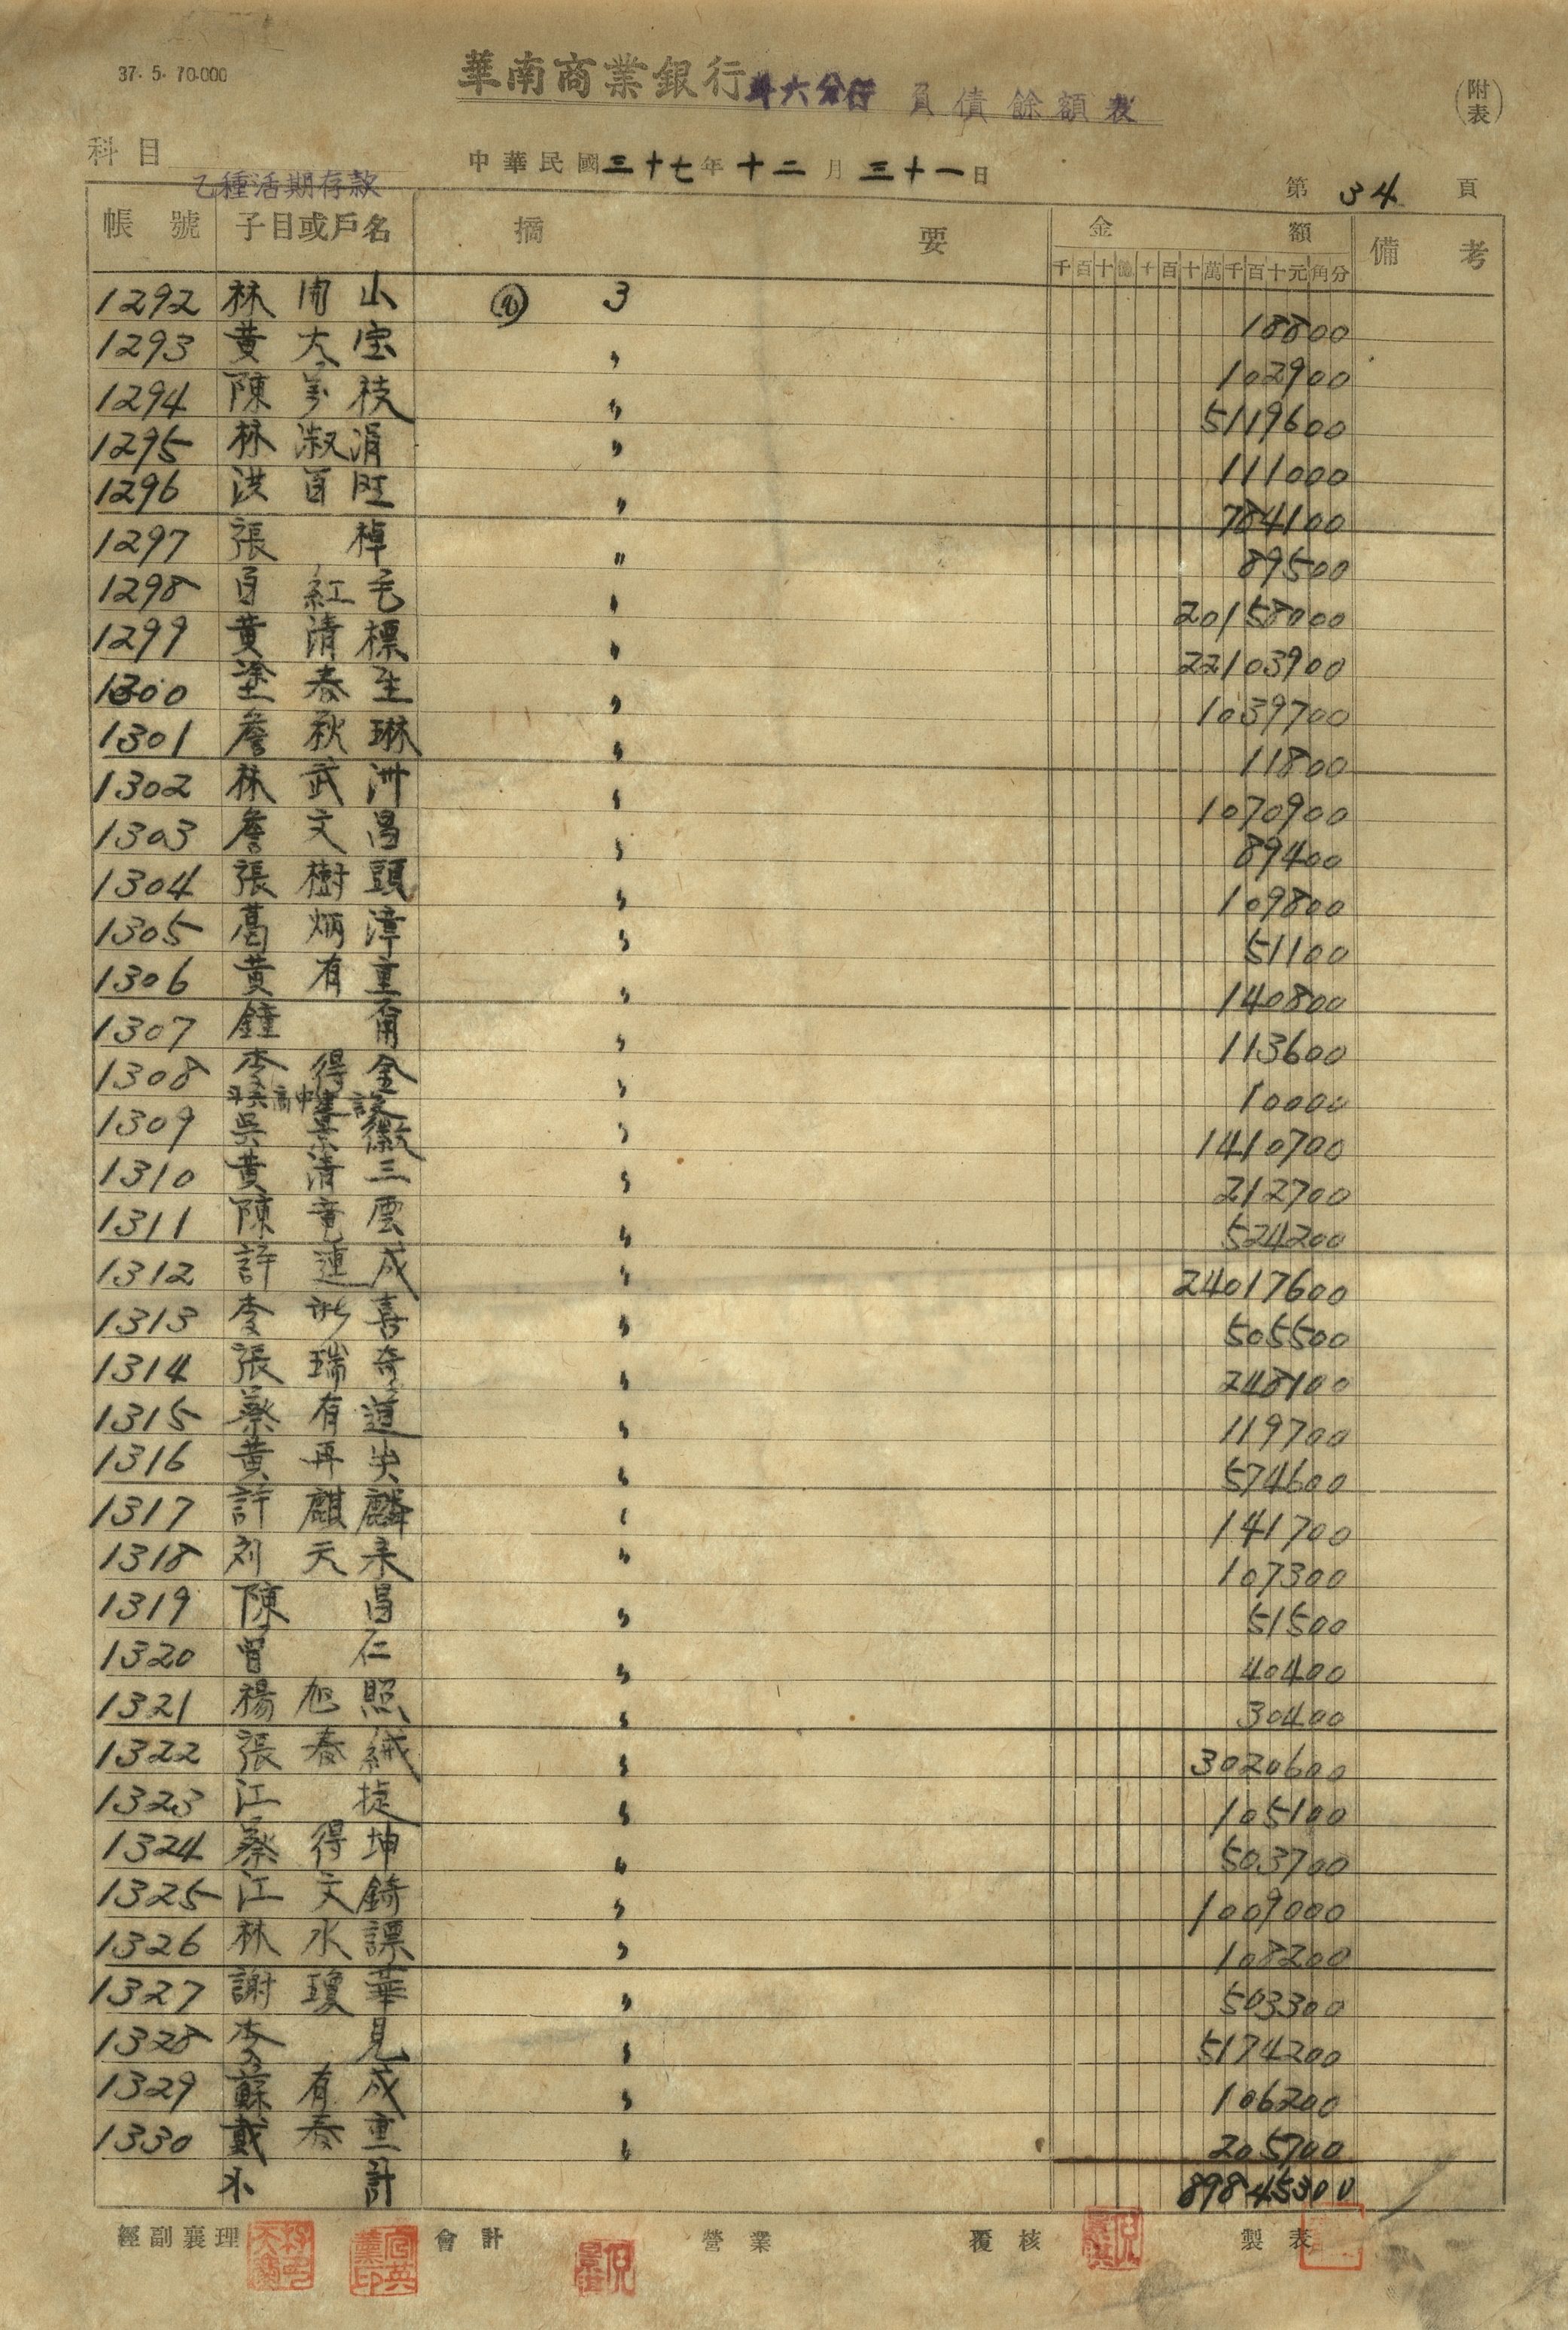 37. 5. 70.000
華南商業銀行斗六分行 負債餘額表
(附表)
科目 乙種活期存款
中華民國三十七年十二月三十一日
第 34 頁
帳號 子目或戶名 摘要 金額 備考
千百十億千百十萬千百十元角分
1292 林 山 3 18800
1293 黃大宝 〃 102900
1294 陳 枝 〃 5119600
1295 林淑涓 〃 111000
1296 洪百旺 〃 784100
1297 張 棹 〃 89500
1298 百紅毛 〃 20158000
1299 黃清標 〃 22103900
1300 塗春生 〃 1039700
1301 詹秋琳 〃 11800
1302 林武洲 〃 1070900
1303 詹文昌 〃 89400
1304 張樹頭 〃 109800
1305 葛炳漳 〃 51100
1306 黃有重 〃 140800
1307 鐘 〃 113600
1308 李得金 〃 10000
1309 吳景徽 〃 1410700
1310 黃清三 〃 212700
1311 陳竜雲 〃 524200
1312 許蓮成 〃 24017600
1313 李 喜 〃 505500
1314 張瑞奇 〃 248100
1315 蔡有道 〃 119700
1316 黃再 〃 574600
1317 許麒麟 〃 141700
1318 刘天 〃 107300
1319 陳 昌 〃 51500
1320 曾 仁 〃 40400
1321 楊旭照 〃 30400
1322 張春絨 〃 3020600
1323 江 捷 〃 105100
1324 蔡得坤 〃 503700
1325 江文錡 〃 1009000
1326 林水諢 〃 108200
1327 謝瓊華 〃 503300
1328 李 見 〃 5174200
1329 蘇有成 〃 106200
1330 戴春重 〃 205700
小計 89845300
經副襄理 會計 營業 覆核 製表